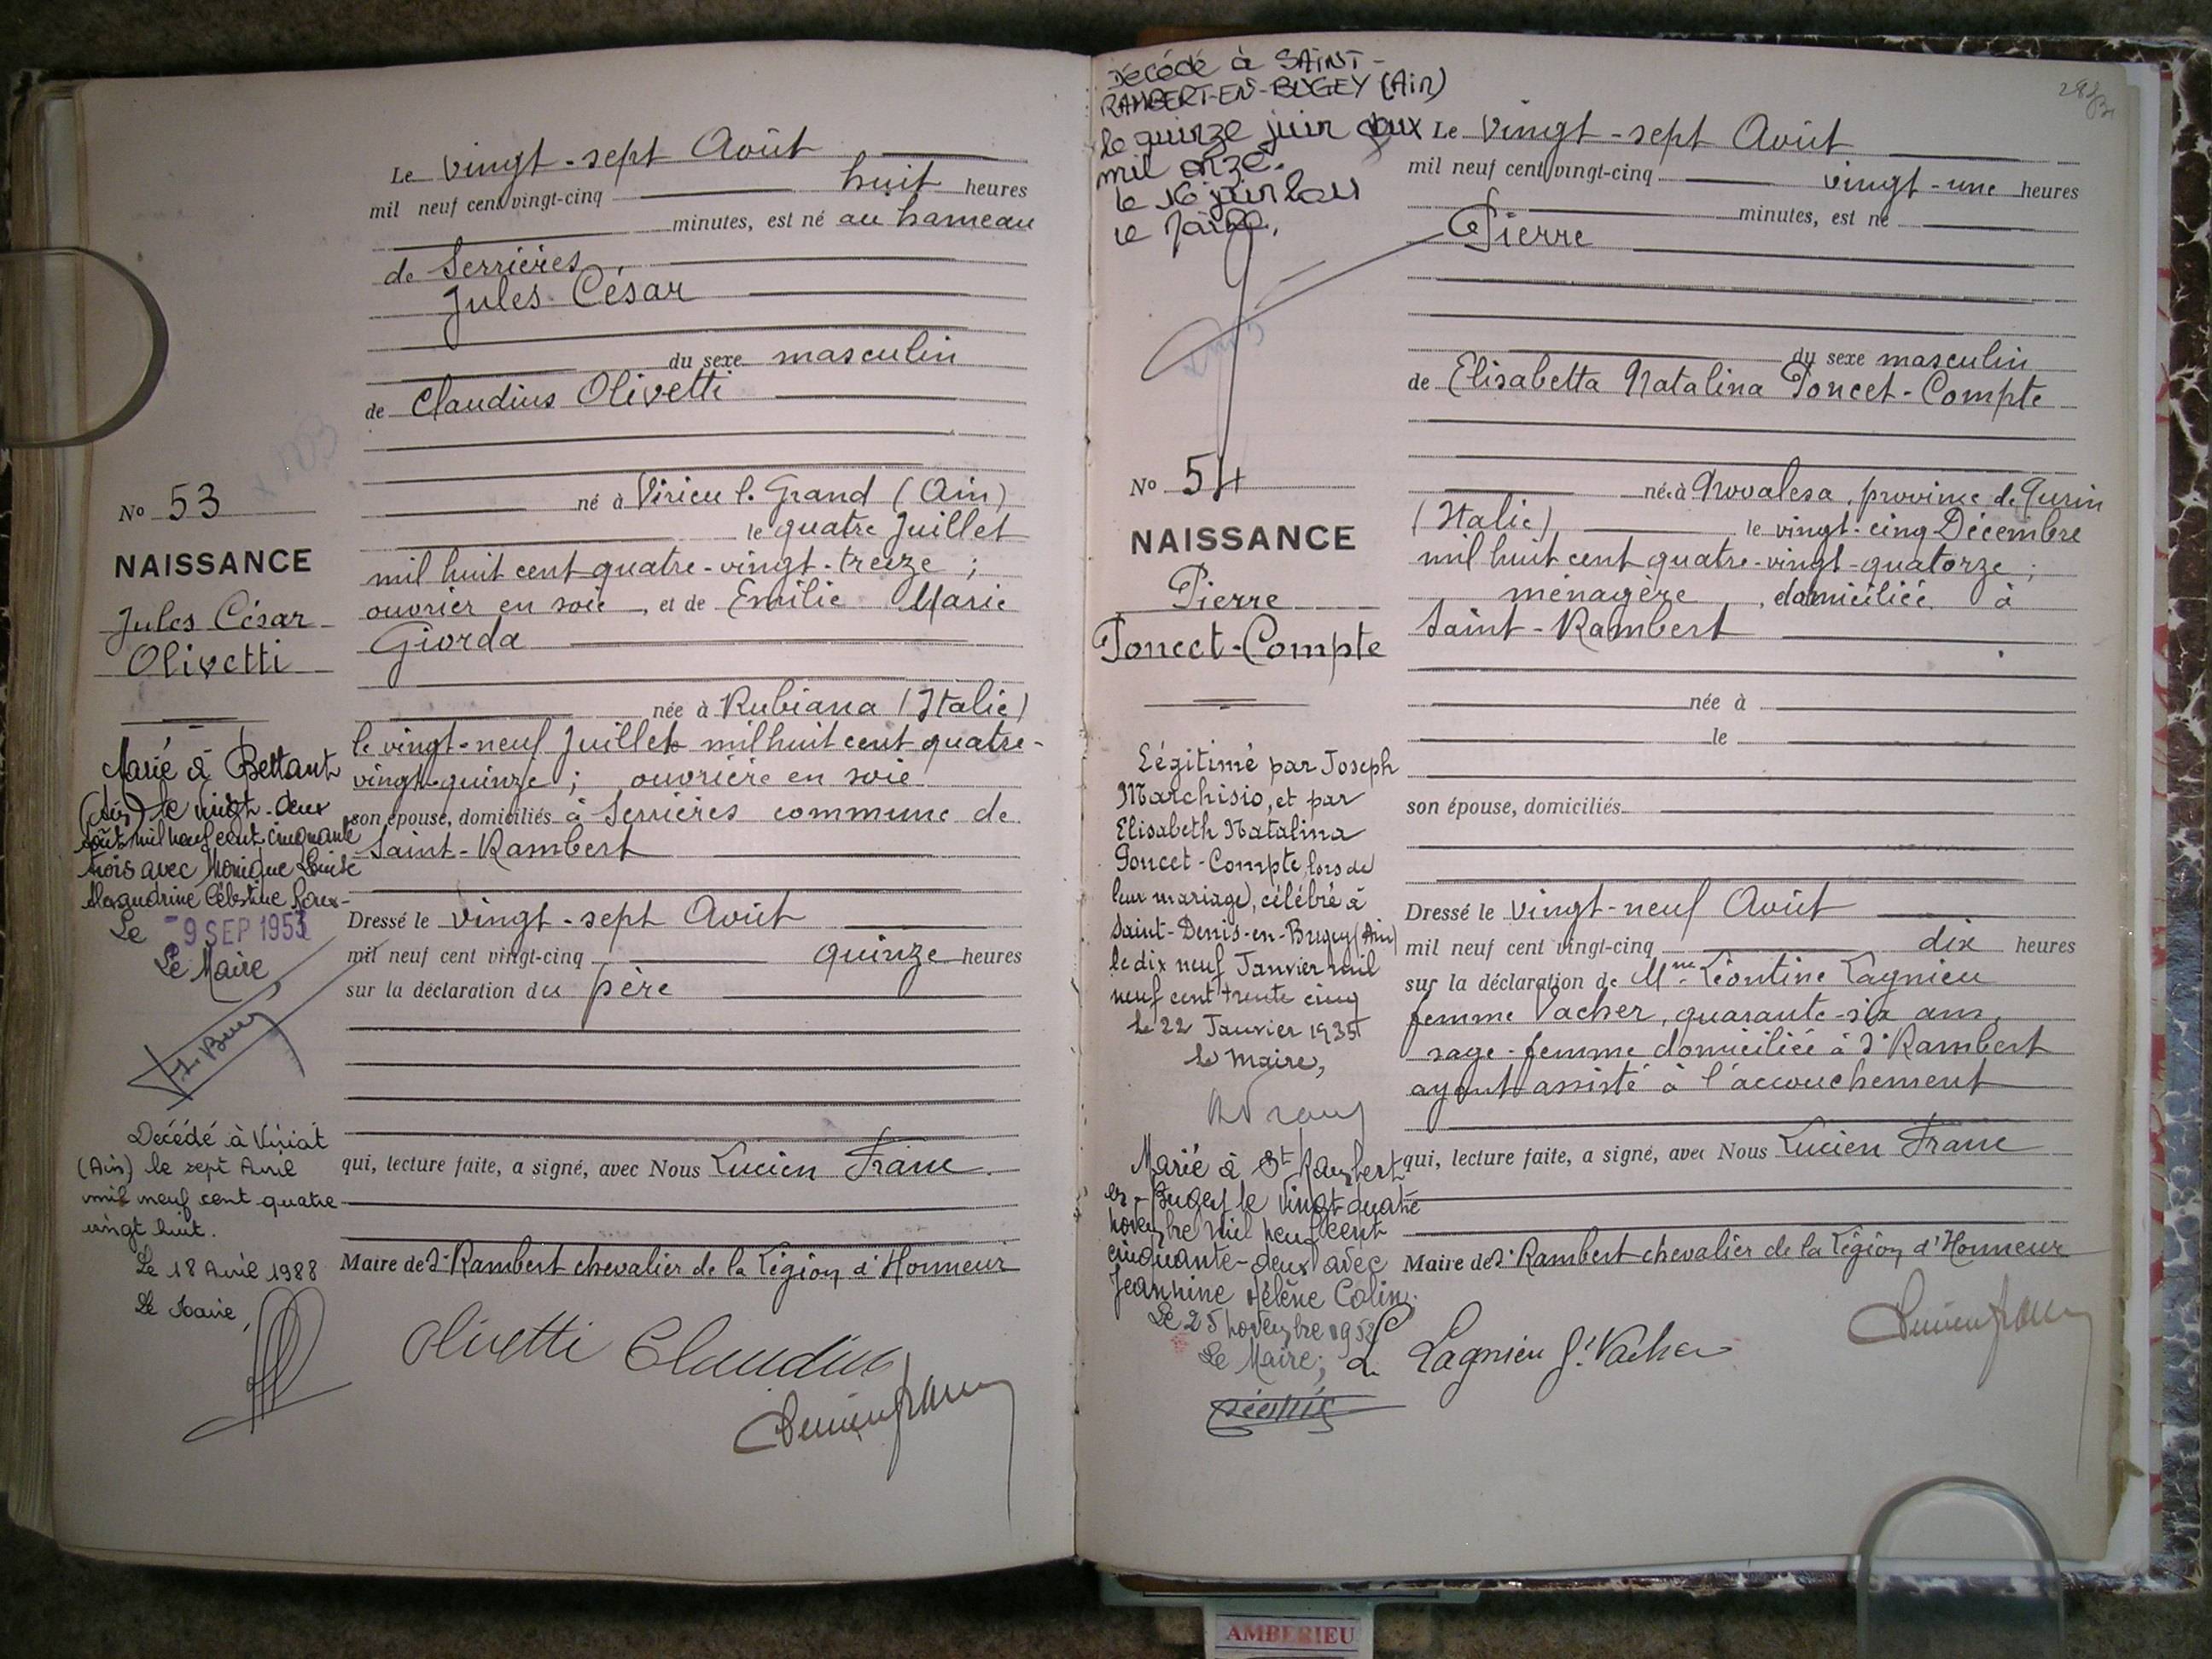 Le vingt-sept Août
mil neuf cent vingt-cinq huit heures
minutes, est né au hameau
de Serrières
Jules César
du sexe masculin
de Claudius Olivetti
né à Virieu l. Grand (Ain)
le quatre Juillet
mil huit cent quatre-vingt-treize ;
ouvrier en soie, et de Emilie Marie
Giorda
née à Rubiana (Italie)
le vingt-neuf Juillet mil huit cent quatre-
vingt-quinze ; ouvrière en soie
son épouse, domiciliés à Serrières commune de
Saint-Rambert
Dressé le vingt-sept Août
mil neuf cent vingt-cinq quinze heures
sur la déclaration du père
qui, lecture faite, a signé, avec Nous Lucien Franc
Maire de St Rambert chevalier de la Légion d'Honneur
Olivetti Claudius
No 53
NAISSANCE
Jules César
Olivetti
Marié à Bettant
(Ain) le vingt-deux
août mil neuf cent cinquante
trois avec Monique Louise
Alexandrine Célestine Roux-
Le -9 SEP 1953
Le Maire
Décédé à Viriat
(Ain) le sept Avril
mil neuf cent quatre
vingt huit.
Le 18 Avril 1988
Le Maire,
Décédé à SAINT-
RAMBERT-EN-BUGEY (Ain)
le quinze juin deux
mil onze.
le 16 juin 2011
le Maire,
No 54
NAISSANCE
Pierre
Poncet-Compte
Légitimé par Joseph
Marchisio, et par
Elisabeth Natalina
Poncet-Compte, lors de
leur mariage, célébré à
Saint-Denis-en-Bugey (Ain)
le dix neuf Janvier mil
neuf cent trente cinq
le 22 Janvier 1935
le Maire,
Marié à St Rambert
en-Bugey le vingt quatre
novembre mil neuf cent
cinquante-deux avec
Jeannine Hélène Colin.
Le 25 novembre 1952
Le Maire;
Le vingt-sept Août
mil neuf cent vingt-cinq vingt-une heures
minutes, est né
Pierre
du sexe masculin
de Elisabetta Natalina Poncet-Compte
née à Novalesa, province de Turin
(Italie) le vingt-cinq Décembre
mil huit cent quatre-vingt-quatorze ;
ménagère, domiciliée à
Saint-Rambert
née à
le
son épouse, domiciliés
Dressé le vingt-neuf Août
mil neuf cent vingt-cinq dix heures
sur la déclaration de Mme Léontine Lagnieu
femme Vacher, quarante-six ans,
sage-femme domiciliée à St Rambert
ayant assisté à l'accouchement
qui, lecture faite, a signé, avec Nous Lucien Franc
Maire de St Rambert chevalier de la Légion d'Honneur
L. Lagnieu f. Vacher
AMBERIEU